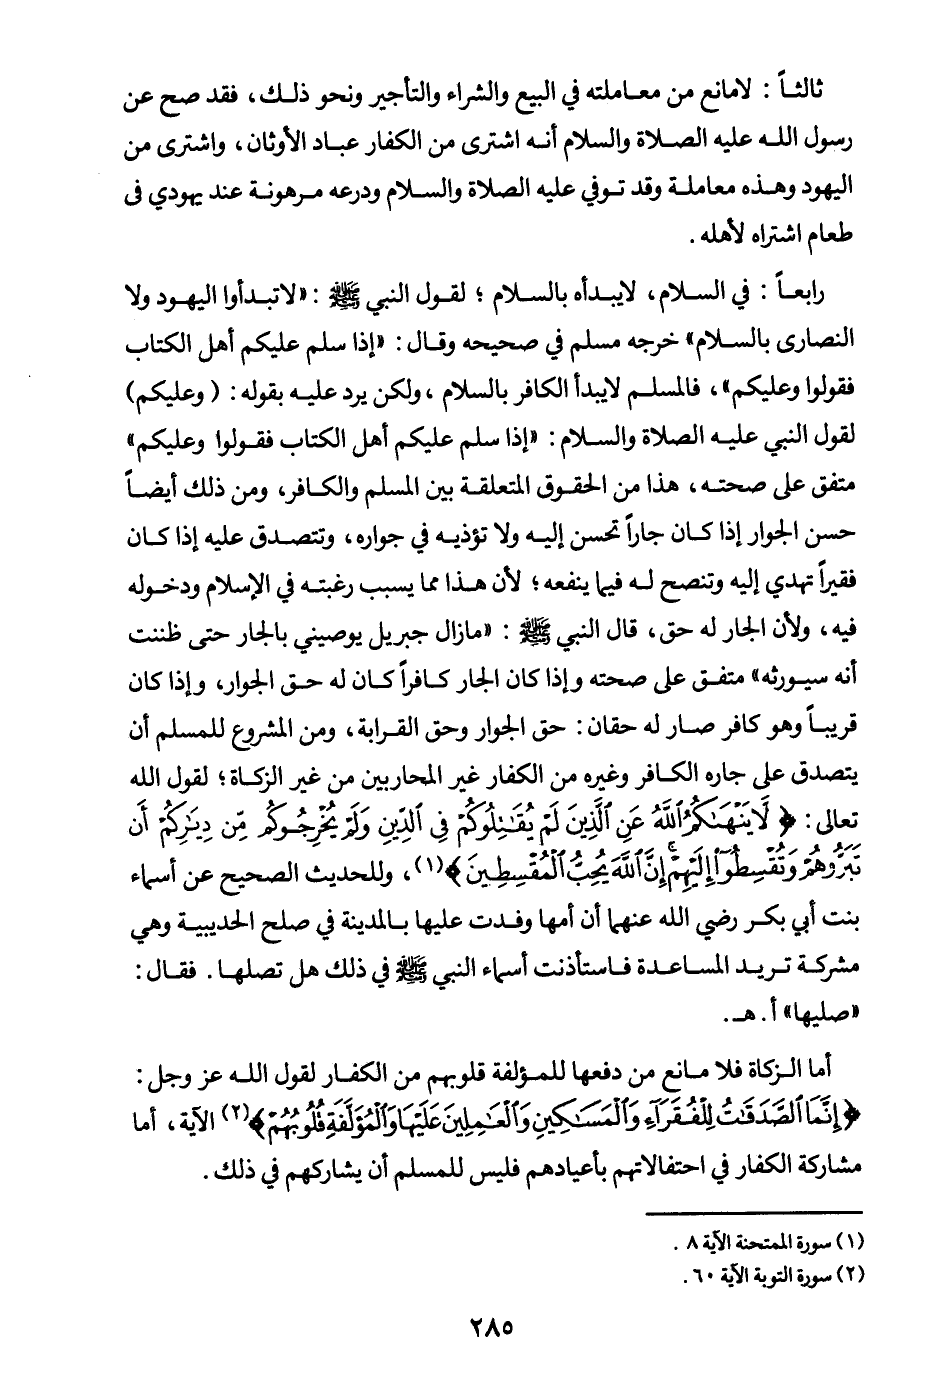 ثالثاً : لامانع من معاملته في البيع والشراء والتأجير ونحو ذلك، فقد صح عن
رسول الله عليه الصلاة والسلام أنه اشترى من الكفار عباد الأوثان، واشترى من
اليهود وهذه معاملة وقد توفي عليه الصلاة والسلام ودرعه مرهونة عند يهودي فى
طعام اشتراه لأهله .
رابعاً : في السلام، لايبدأه بالسلام ؛ لقول النبي ﷺ : «لاتبدأوا اليهود ولا
النصارى بالسلام» خرجه مسلم في صحيحه وقال : «إذا سلم عليكم أهل الكتاب
فقولوا وعليكم»، فالمسلم لايبدأ الكافر بالسلام ،ولكن يرد عليه بقوله : ( وعليكم)
لقول النبي عليه الصلاة والسلام : «إذا سلم عليكم أهل الكتاب فقولوا وعليكم»
متفق على صحته، هذا من الحقوق المتعلقة بين المسلم والكافر، ومن ذلك أيضاً
حسن الجوار إذا كان جاراً تحسن إليه ولا تؤذيه في جواره، وتتصدق عليه إذا كان
فقيراً تهدي إليه وتنصح له فيما ينفعه؛ لأن هذا مما يسبب رغبته في الإسلام ودخوله
فيه، ولأن الجار له حق، قال النبي ﷺ : «مازال جبريل يوصيني بالجار حتى ظننت
أنه سيورثه» متفق على صحته وإذا كان الجار كافراً كان له حق الجوار، وإذا كان
قريباً وهو كافر صار له حقان : حق الجوار وحق القرابة، ومن المشروع للمسلم أن
يتصدق على جاره الكافر وغيره من الكفار غير المحاربين من غير الزكاة؛ لقول الله
تعالى: ﴿ لَّا يَنْهَىٰكُمُ ٱللَّهُ عَنِ ٱلَّذِينَ لَمْ يُقَٰتِلُوكُمْ فِى ٱلدِّينِ وَلَمْ يُخْرِجُوكُم مِّن دِيَٰرِكُمْ أَن
تَبَرُّوهُمْ وَتُقْسِطُوٓا۟ إِلَيْهِمْ ۚ إِنَّ ٱللَّهَ يُحِبُّ ٱلْمُقْسِطِينَ ﴾(١)، وللحديث الصحيح عن أسماء
بنت أبي بكر رضي الله عنهما أن أمها وفدت عليها بالمدينة في صلح الحديبية وهي
مشركة تريد المساعدة فاستأذنت أسماء النبي ﷺ في ذلك هل تصلها . فقال :
«صليها» أ. هـ.
أما الزكاة فلا مانع من دفعها للمؤلفة قلوبهم من الكفار لقول الله عز وجل :
﴿ إِنَّمَا ٱلصَّدَقَٰتُ لِلْفُقَرَآءِ وَٱلْمَسَٰكِينِ وَٱلْعَٰمِلِينَ عَلَيْهَا وَٱلْمُؤَلَّفَةِ قُلُوبُهُمْ ﴾(٢) الآية، أما
مشاركة الكفار في احتفالاتهم بأعيادهم فليس للمسلم أن يشاركهم في ذلك .
(١) سورة الممتحنة الآية ٨ .
(٢) سورة التوبة الآية ٦٠ .
٢٨٥